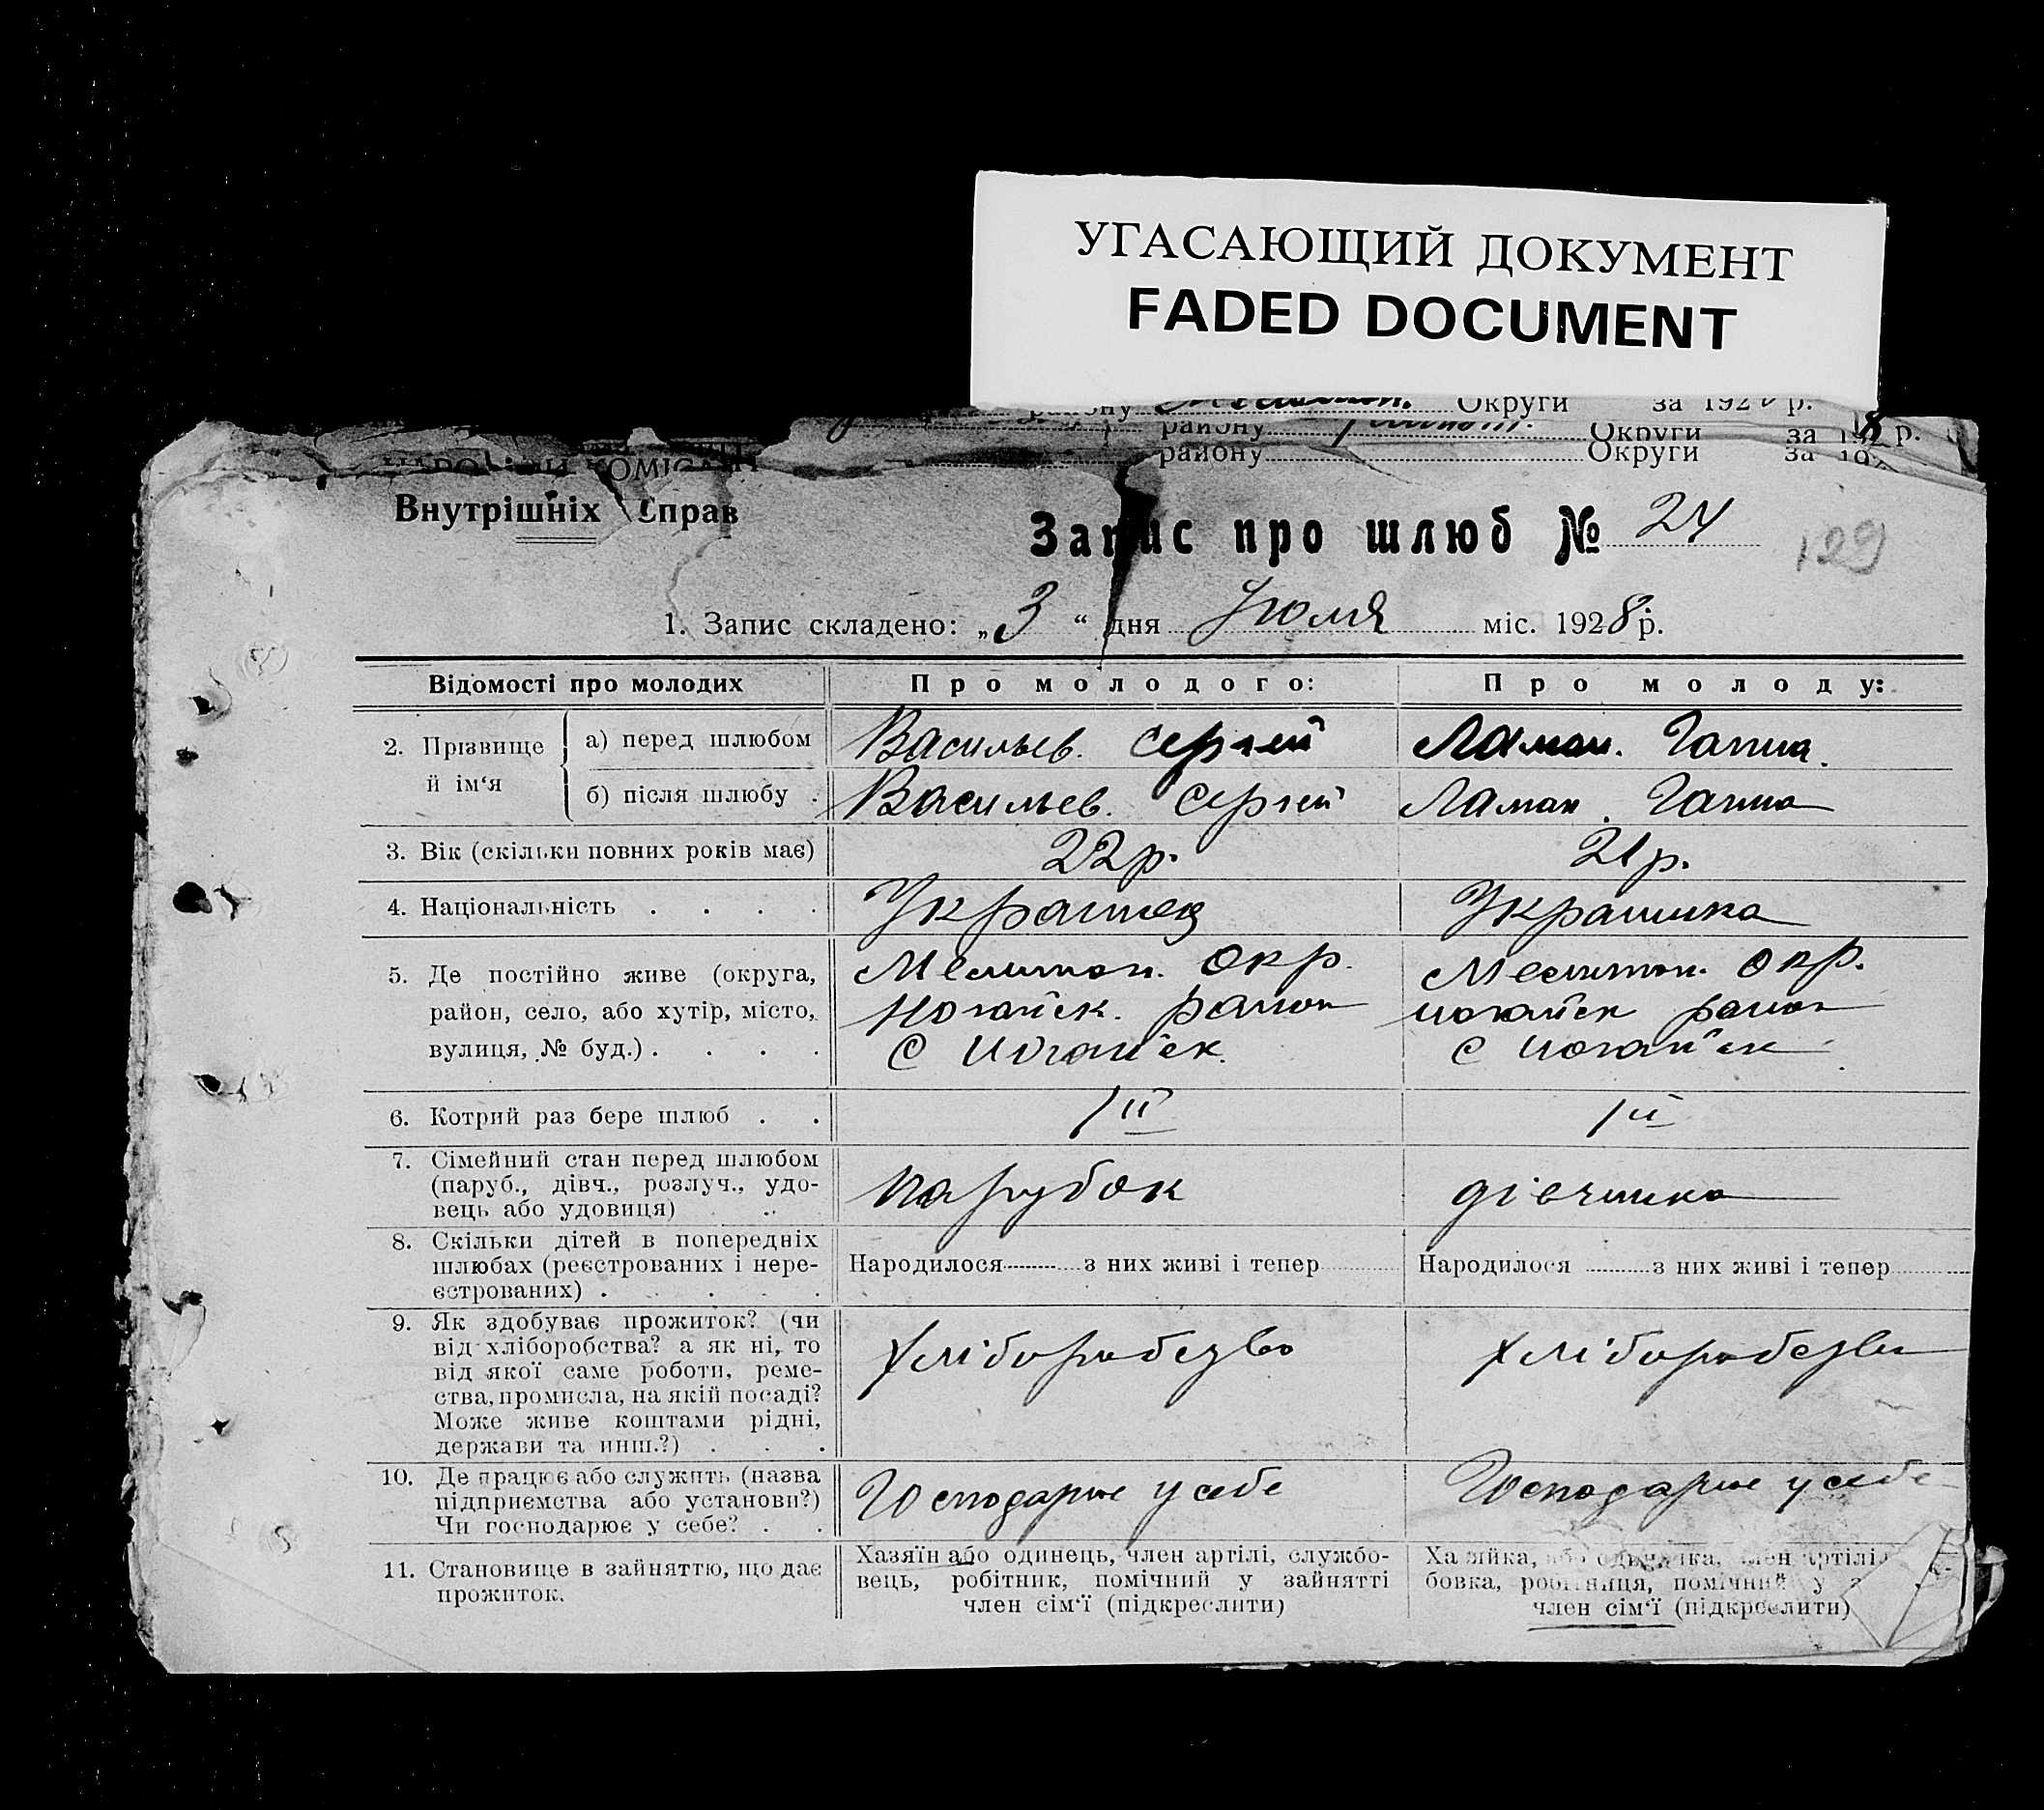 УГАСАЮЩИЙ ДОКУМЕНТ
FADED DOCUMENT
Округи за 192 р.
району Округи за 1928 р.
району Округи за 192
Внутрішніх Справ
Запис про шлюб № 24
129
1. Запис складено: „3“ дня Июля міс. 1928 р.
Відомості про молодих Про молодого: Про молоду:
2. Прізвище й ім‘я
а) перед шлюбом Васильев. Сергей Ламан. Ганна.
б) після шлюбу . Васильев. Сергей Ламан. Ганна
3. Вік (скільки повних років має) 22 р. 21 р.
4. Національність . . . . Украинец Украинка
5. Де постійно живе (округа, Мелитоп. Окр. Мелитоп. Окр.
район, село, або хутір, місто, Ногайск. район ногайск район
вулиця, № буд.) . . . . с Ногайск. с Ногайск
6. Котрий раз бере шлюб . . 1й 1й
7. Сімейний стан перед шлюбом
(паруб., дівч., розлуч., удо- парубок дівчинка
вець або удовиця)
8. Скільки дітей в попередніх
шлюбах (реєстрованих і нере- Народилося з них живі і тепер Народилося з них живі і тепер
єстрованих) . . . .
9. Як здобуває прожиток? (чи
від хліборобства? а як ні, то Хліборобезво хліборобезво
від якої саме роботи, реме-
ства, промисла, на якій посаді?
Може живе коштами рідні,
держави та инш.?) . . .
10. Де працює або служить (назва
підприємства або установи?) Господарює у себе Господарює у себе
Чи господарює у себе? . .
11. Становище в зайняттю, що дає
прожиток.
Хазяїн або одинець, член артілі, службо-
вець, робітник, помічний у зайнятті
член сім‘ї (підкреслити)
Хазяйка, або одиначка, член артілі,
бовка, робітниця, помічний у
член сім‘ї (підкреслити)